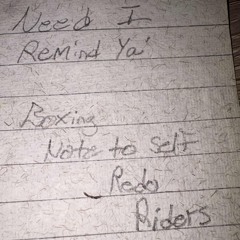 Need I
Remind Ya'
Boxing
Note to self
Redo
Riders